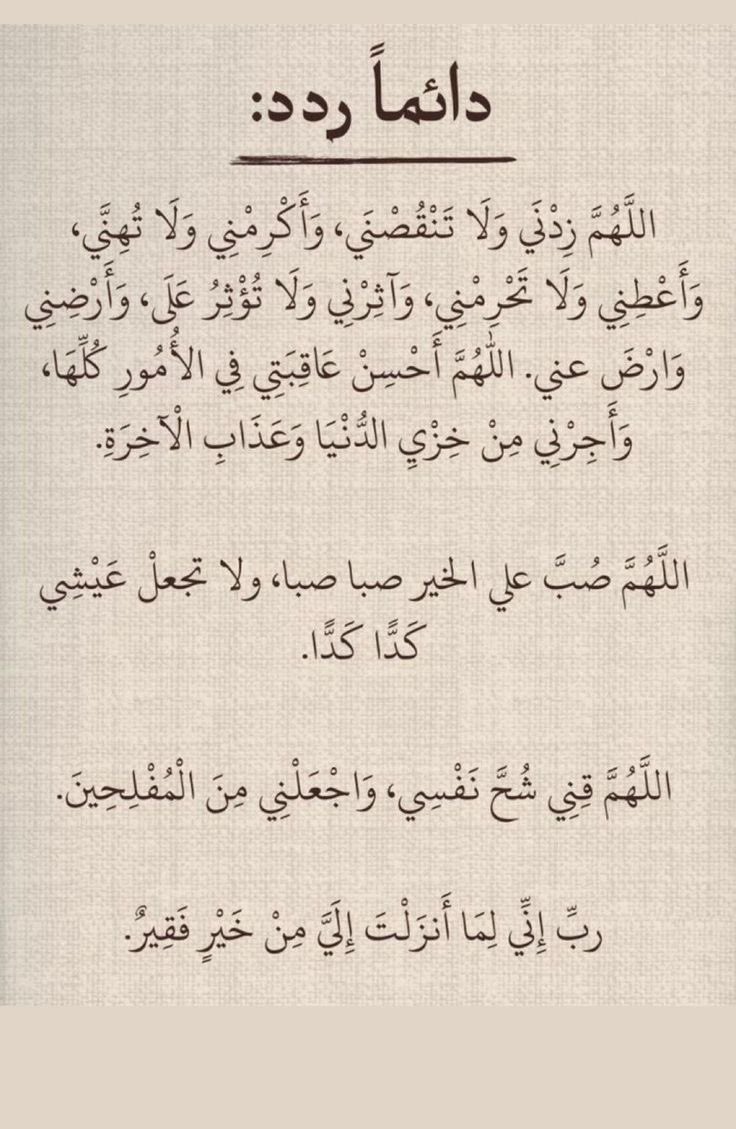 دائماً ردد:
اللَّهُمَّ زِدْنَي وَلَا تَنْقُصْنَي، وَأَكْرِمْنِي وَلَا تُهِنَّي،
وَأَعْطِنِي وَلَا تَحْرِمْنِي، وَآثِرْنِي وَلَا تُؤْثِرُ عَلَى، وَأَرْضِنِي
وَارْضَ عني. اللّٰهُمَّ أَحْسِنْ عَاقِبَتِي فِي الأُمُورِ كُلِّهَا،
وَأَجِرْنِي مِنْ خِزْيِ الدُّنْيَا وَعَذَابِ الْآخِرَةِ.
اللَّهُمَّ صُبَّ علي الخير صبا صبا، ولا تجعلْ عَيْشِي
كَدًّا كَدًّا.
اللَّهُمَّ قِنِي شُحَّ نَفْسِي، وَاجْعَلْنِي مِنَ الْمُفْلِحِينَ.
ربِّ إِنِّي لِمَا أَنزَلْتَ إِلَيَّ مِنْ خَيْرٍ فَقِيرٌ.